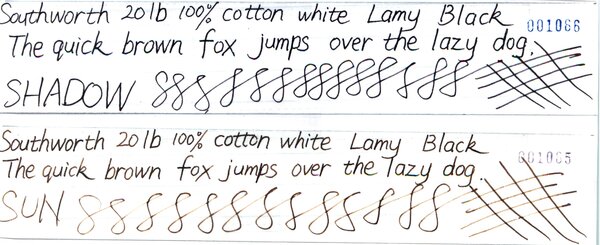 Southworth 20 lb 100% cotton white Lamy Black 001066
The quick brown fox jumps over the lazy dog.
SHADOW
Southworth 20 lb 100% cotton white Lamy Black
001065
The quick brown fox jumps over the lazy dog.
SUN